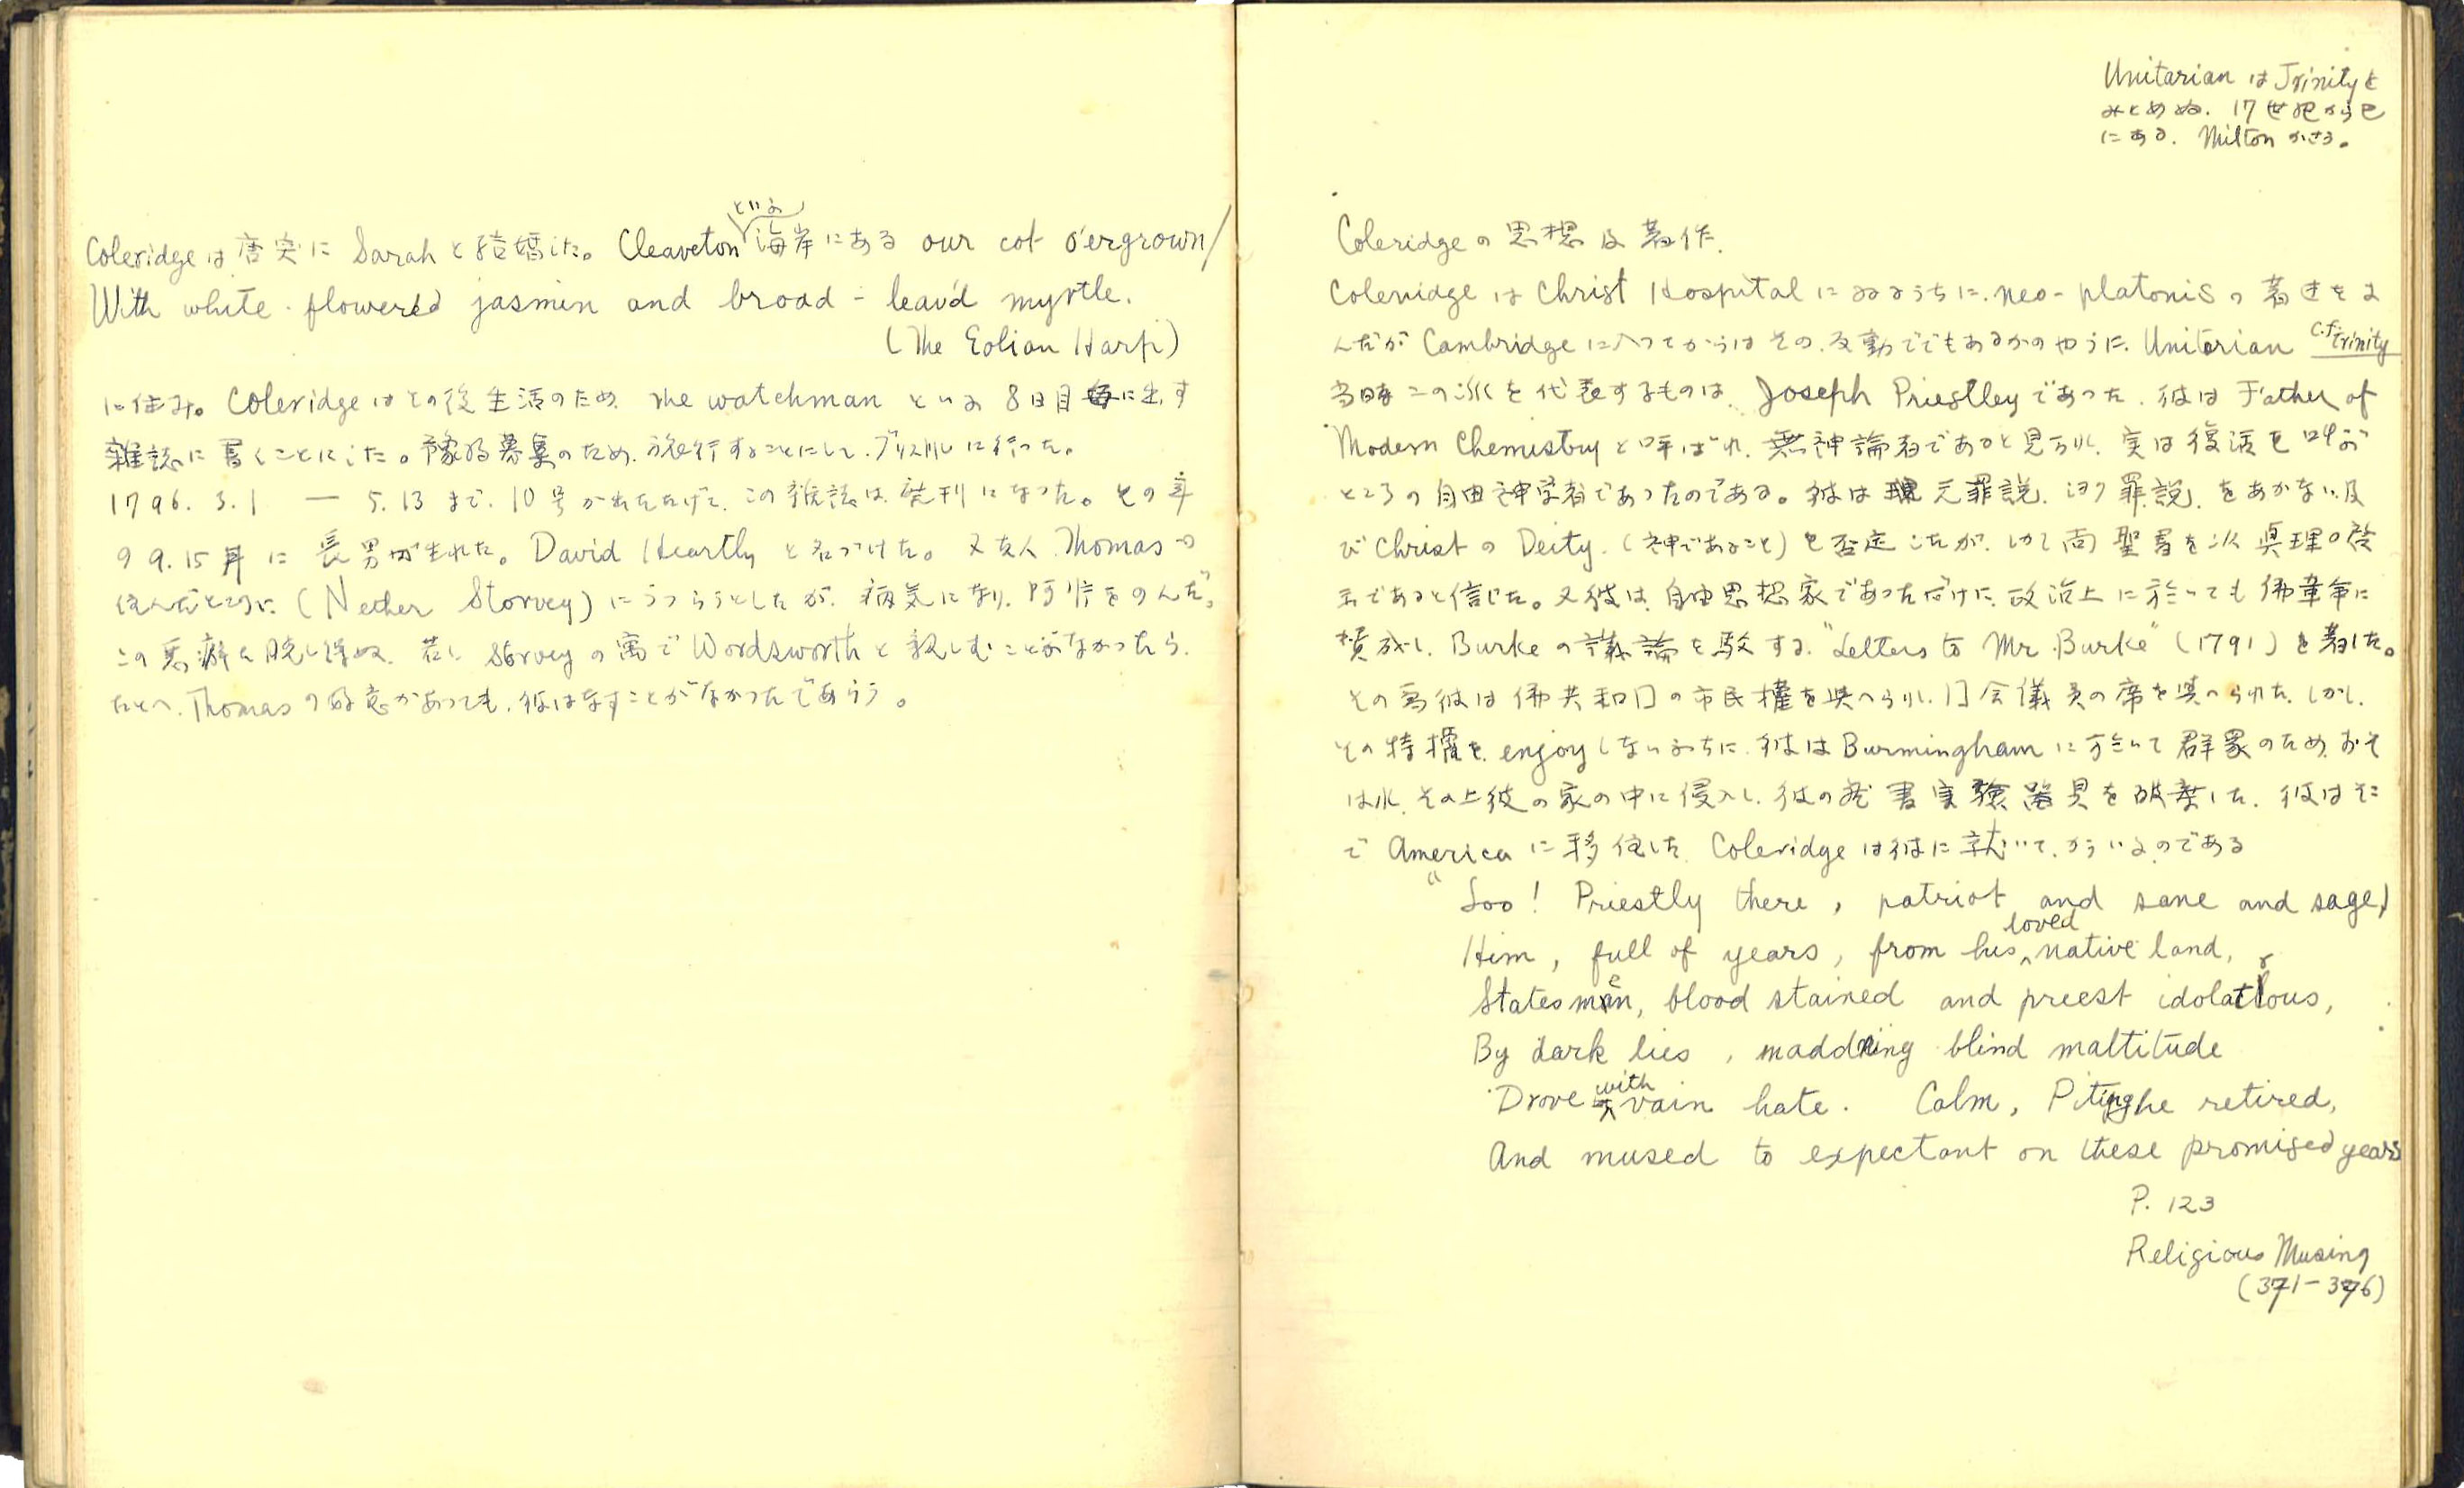 Coleridgeは唐突に Sarah と結婚した。Cleaveton といふ 海岸にある our cot o'ergrown/
With white-flowered jasmin and broad-leav'd myrtle.
(The Eolian Harp)
に住み。Coleridgeはその後生活のため The watchman といふ 8日目毎に出す
雑誌に書くことにした。予約募集のため、旅行することにして、ブリストルに行った。
1796. 3. 1 — 5. 13 まで. 10号が出ただけで、この雑誌は、廃刊になった。その年
の 9. 15 に 長男が生れた。David Heartly と名づけた。又友人 Thomas の
住んだところに (Nether Storvey) にうつらうとしたが、病気になり、阿片をのんだ。
この悪癖を脱し得ぬ. 若し Storvey の寓で Wordsworth と親しむことがなかったら、
たとへ、Thomas の好意があっても、彼はなすことがなかったであらう。
Unitarian は Trinity を
みとめぬ. 17世紀から已
にある. Milton かさう。
Coleridge の思想及著作.
Coleridge は Christ Hospital にゐるうちに、neo-platonis の著述をよ
んだが Cambridge に入つてからは その 反動ででもあるかのやうに、Unitarian c.f. trinity
当時この派を代表するものは、Joseph Priestley であつた. 彼は Father of
Modern Chemistry と呼ばれ、無神論者であると見られ、実は復活を叫ぶ
ところの自由神学者であつたのである。彼は 元罪説、 罪説、をあかない、及
び Christ の Deity. (神であること) を否定したが、しかし尚聖書を以 真理の啓
示であると信じた。又彼は、自由思想家であつただけに、政治上に於ても佛革命に
賛成し、Burke の議論を駁する. "Letters to Mr. Burke" (1791) を著した。
その為彼は佛共和囗の市民權を與へられ、囗会議員の席を與へられた、しかし、
その特權を enjoy しないうちに、彼は Burmingham に於いて群衆のため、おそ
はれ、その上彼の家の中に侵入し、彼の蔵書実験器具を破棄した、彼はそこ
で America に移住した Coleridge は彼に就いて、かういふのである
"Loo! Priestly there, patriot and sane and sage,
Him, full of years, from his loved native land,
Statesmen, blood stained and preest idolatrous,
By dark lies, maddning blind maltitude
Drove with vain hate. Calm, Pitying he retired,
And mused to expectant on these promised years
P. 123
Religious Musing
(371-376)